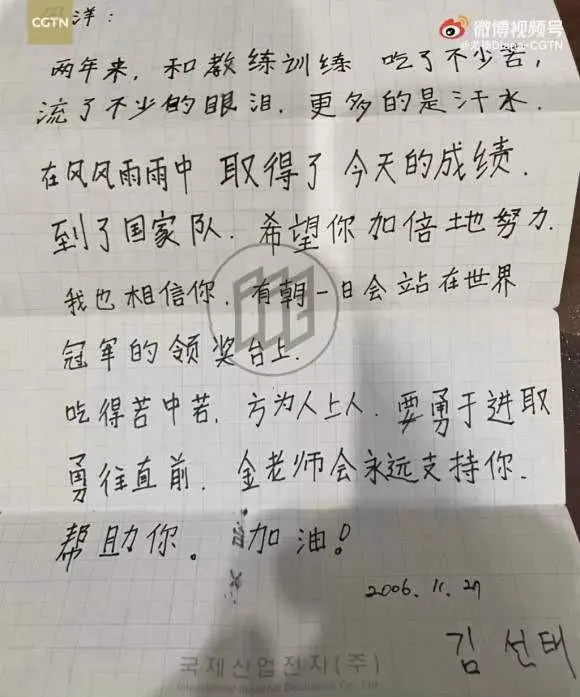 CGTN
微博视频号
Diana-CGTN
洋：
两年来，和教练训练 吃了不少苦，
流了不少的眼泪．更多的是汗水．
在风风雨雨中 取得了今天的成绩．
到了国家队．希望你加倍地努力．
我也相信你．有朝一日会站在世界
冠军的领奖台上．
吃得苦中苦，方为人上人．要勇于进取
勇往直前．金老师会永远支持你．
帮助你。加油！
2006.11.27
김선태
국제산업전자(주)
International Industrial Electronics Co., Ltd